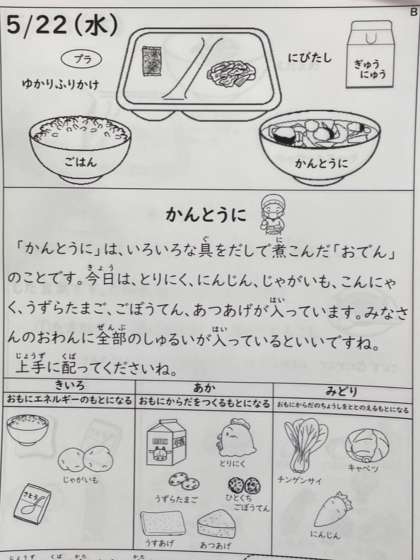 B
5/22(水)
プラ
ゆかりふりかけ
にびたし
ぎゅう
にゅう
ごはん
かんとうに
かんとうに
「かんとうに」は、いろいろな具をだしで煮こんだ「おでん」
のことです。今日は、とりにく、にんじん、じゃがいも、こんにゃ
く、うずらたまご、ごぼうてん、あつあげが入っています。みなさ
んのおわんに全部のしゅるいが入っているといいですね。
上手に配ってくださいね。
きいろ
あか
みどり
おもにエネルギーのもとになる
おもにからだをつくるもとになる
おもにからだのちょうしをととのえるもとになる
じゃがいも
さとう
とりにく
うずらたまご
ひとくち
ごぼうてん
うすあげ
あつあげ
チンゲンサイ
キャベツ
にんじん